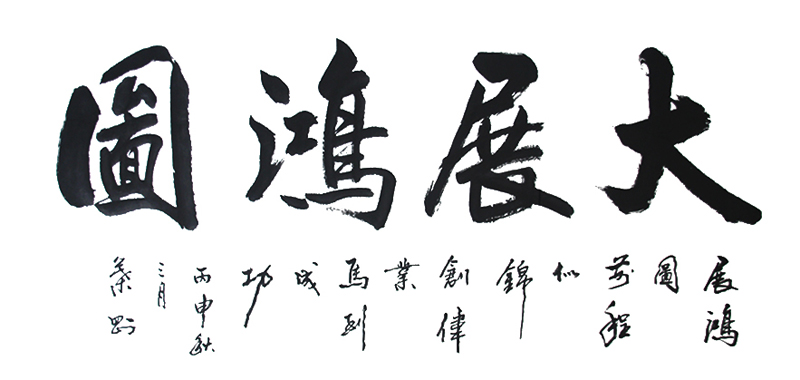 大展鴻圖
展鴻
圖
前程
似
錦
創偉
業
馬到
成
功
丙申秋
三月
葉